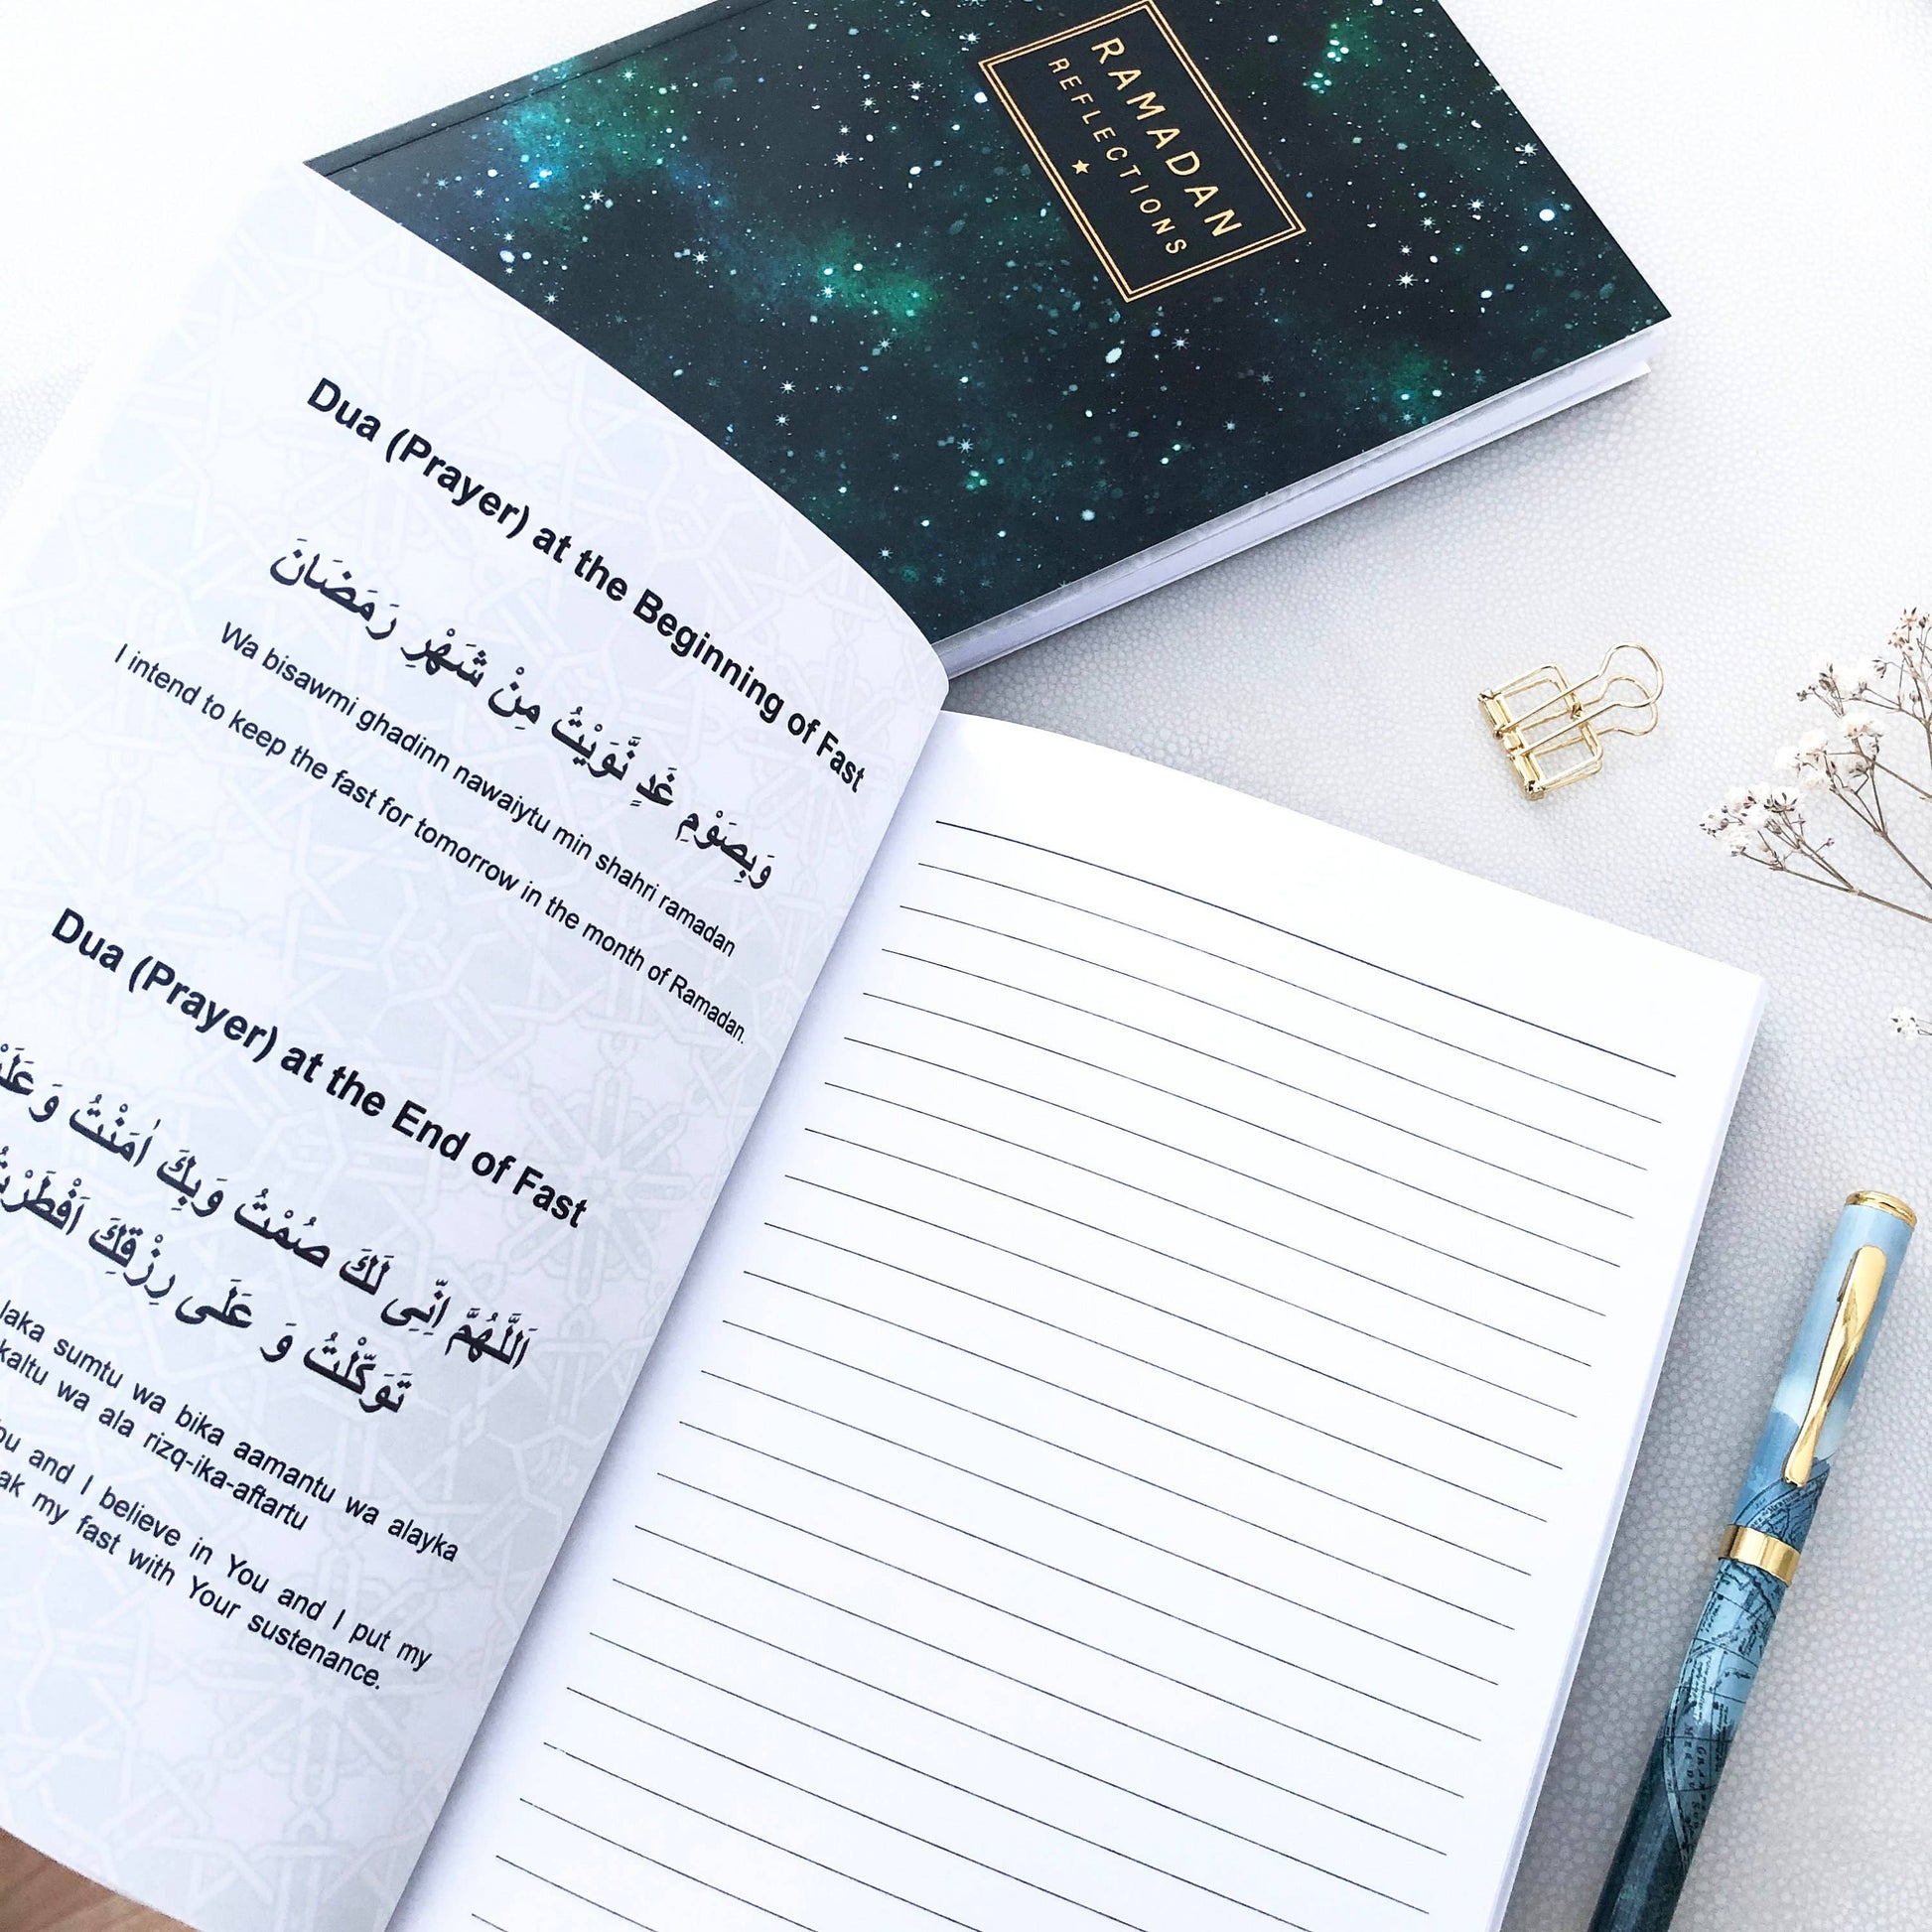 RAMADAN
REFLECTIONS
Dua (Prayer) at the Beginning of Fast
وَبِصَوْمِ غَدٍ نَّوَيْتُ مِنْ شَهْرِ رَمَضَانَ
Wa bisawmi ghadinn nawaiytu min shahri ramadan
I intend to keep the fast for tomorrow in the month of Ramadan.
Dua (Prayer) at the End of Fast
اَللّٰهُمَّ اِنِّى لَكَ صُمْتُ وَبِكَ اٰمَنْتُ
تَوَكَّلْتُ وَ عَلَى رِزْقِكَ اَفْطَرْتُ
laka sumtu wa bika aamantu wa alayka
wa ala rizq-ika-aftartu
and I believe in You and I put my
my fast with Your sustenance.